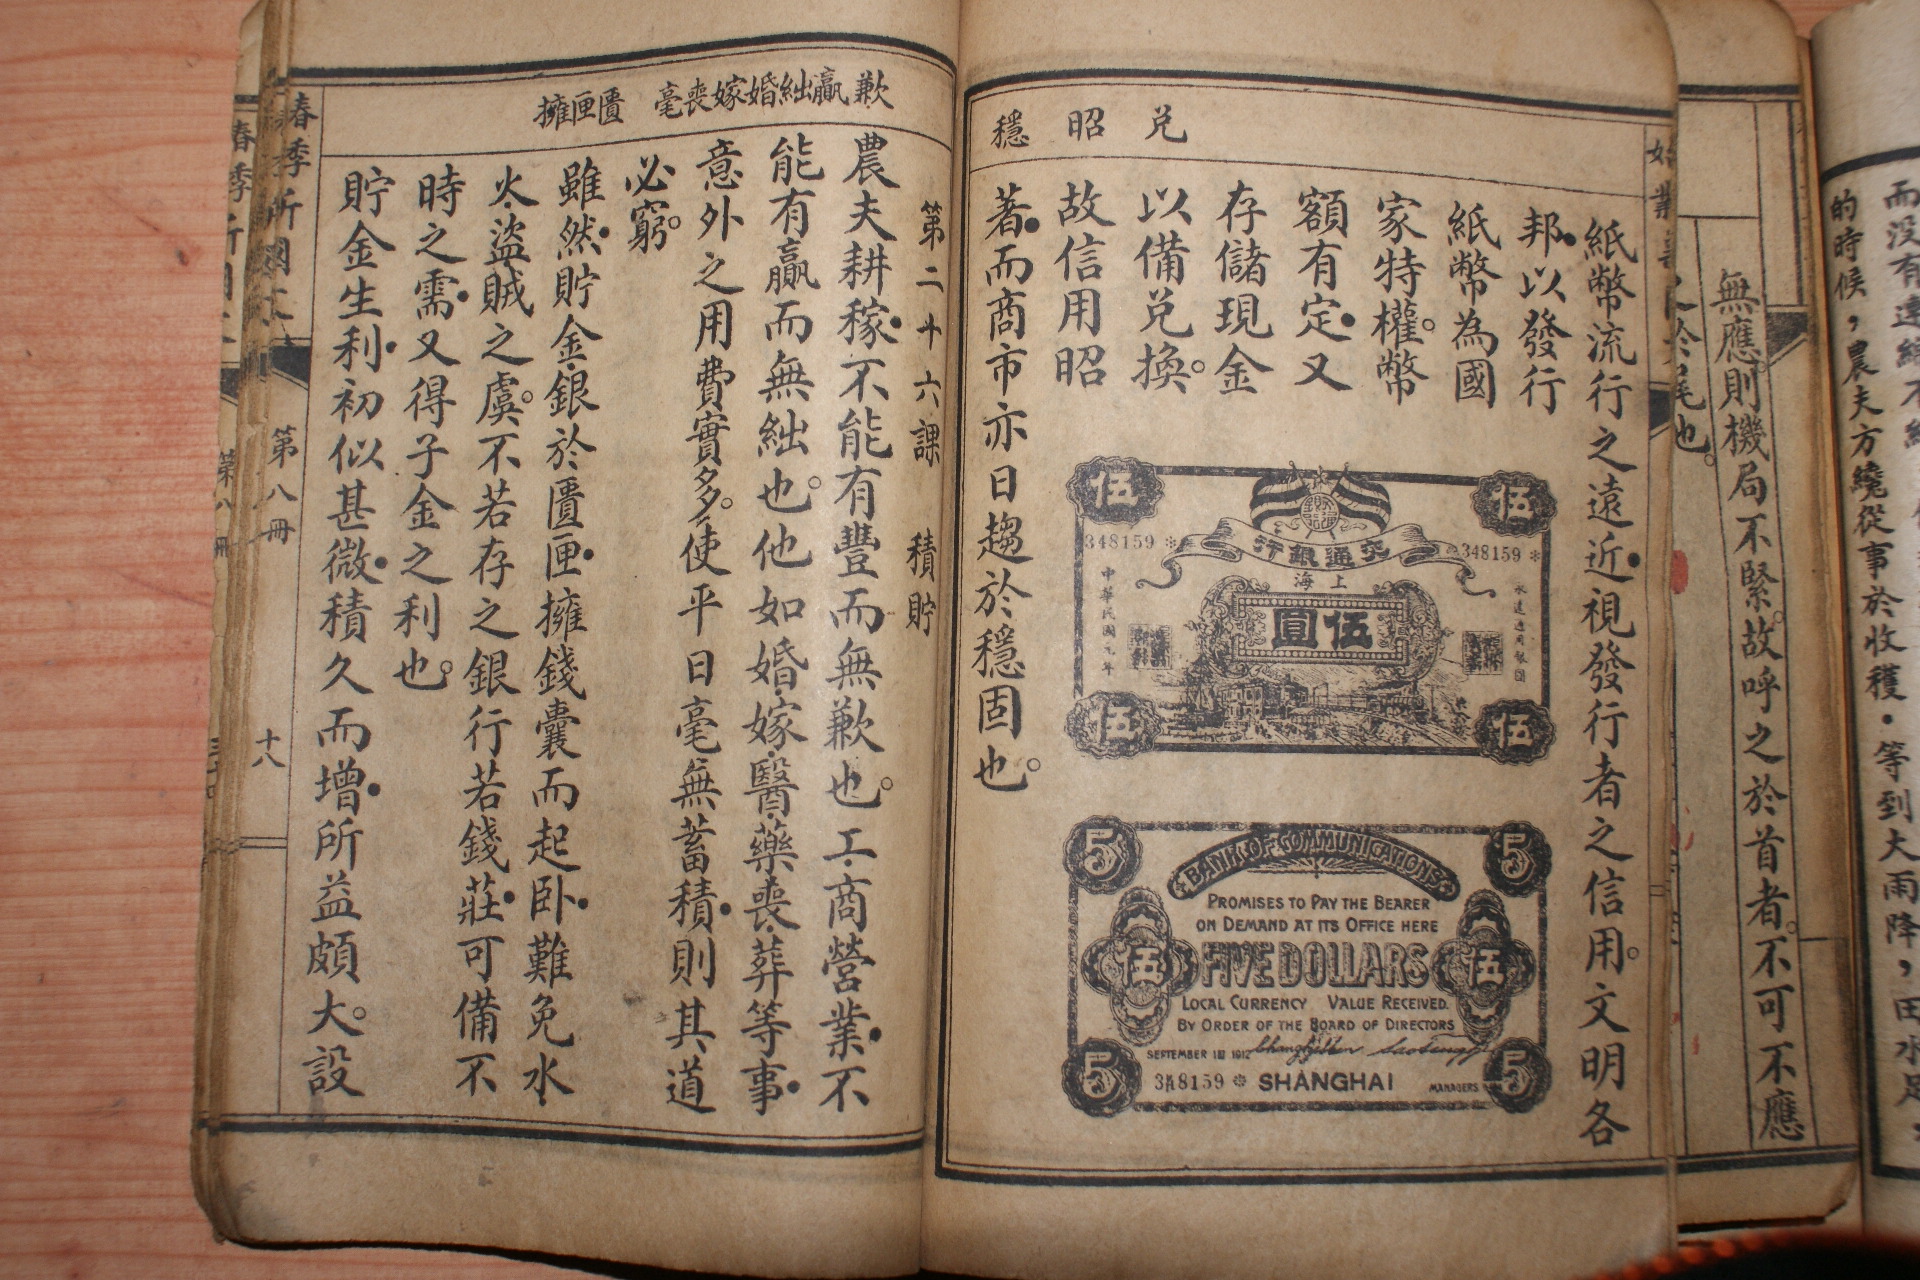 而没有
的時候，農夫方纔從事於收穫．等到大雨降，田水
無應．則機局不緊．故呼之於首者．不可不應
之於尾也。
兌　昭　穩
紙幣流行之遠近．視發行者之信用。文明各
邦．以發行
紙幣為國
家特權。幣
額有定．又
存儲現金
以備兌換。
故信用昭
著．而商市亦日趨於穩固也。
伍 伍
交通銀行
348159 348159
上海
中華民國元年
伍圓
永遠通用銀圓
伍 伍
5 5
BANK OF COMMUNICATIONS
PROMISES TO PAY THE BEARER
ON DEMAND AT ITS OFFICE HERE
伍 FIVE DOLLARS 伍
LOCAL CURRENCY VALUE RECEIVED.
BY ORDER OF THE BOARD OF DIRECTORS
SEPTEMBER 1st 1912
348159 SHANGHAI MANAGERS
5 5
歉贏絀婚嫁喪毫　匱匣擁
第二十六課　積貯
農夫耕稼．不能有豐而無歉也。工商營業．不
能有贏而無絀也。他如婚嫁醫藥喪葬等事．
意外之用費實多。使平日毫無蓄積．則其道
必窮。
雖然．貯金銀於匱匣．擁錢囊而起卧．難免水
火盜賊之虞。不若存之銀行若錢莊．可備不
時之需．又得子金之利也。
貯金生利．初似甚微．積久而增．所益頗大。設
春季新國文
第八冊
十八
春季新國文
第八冊